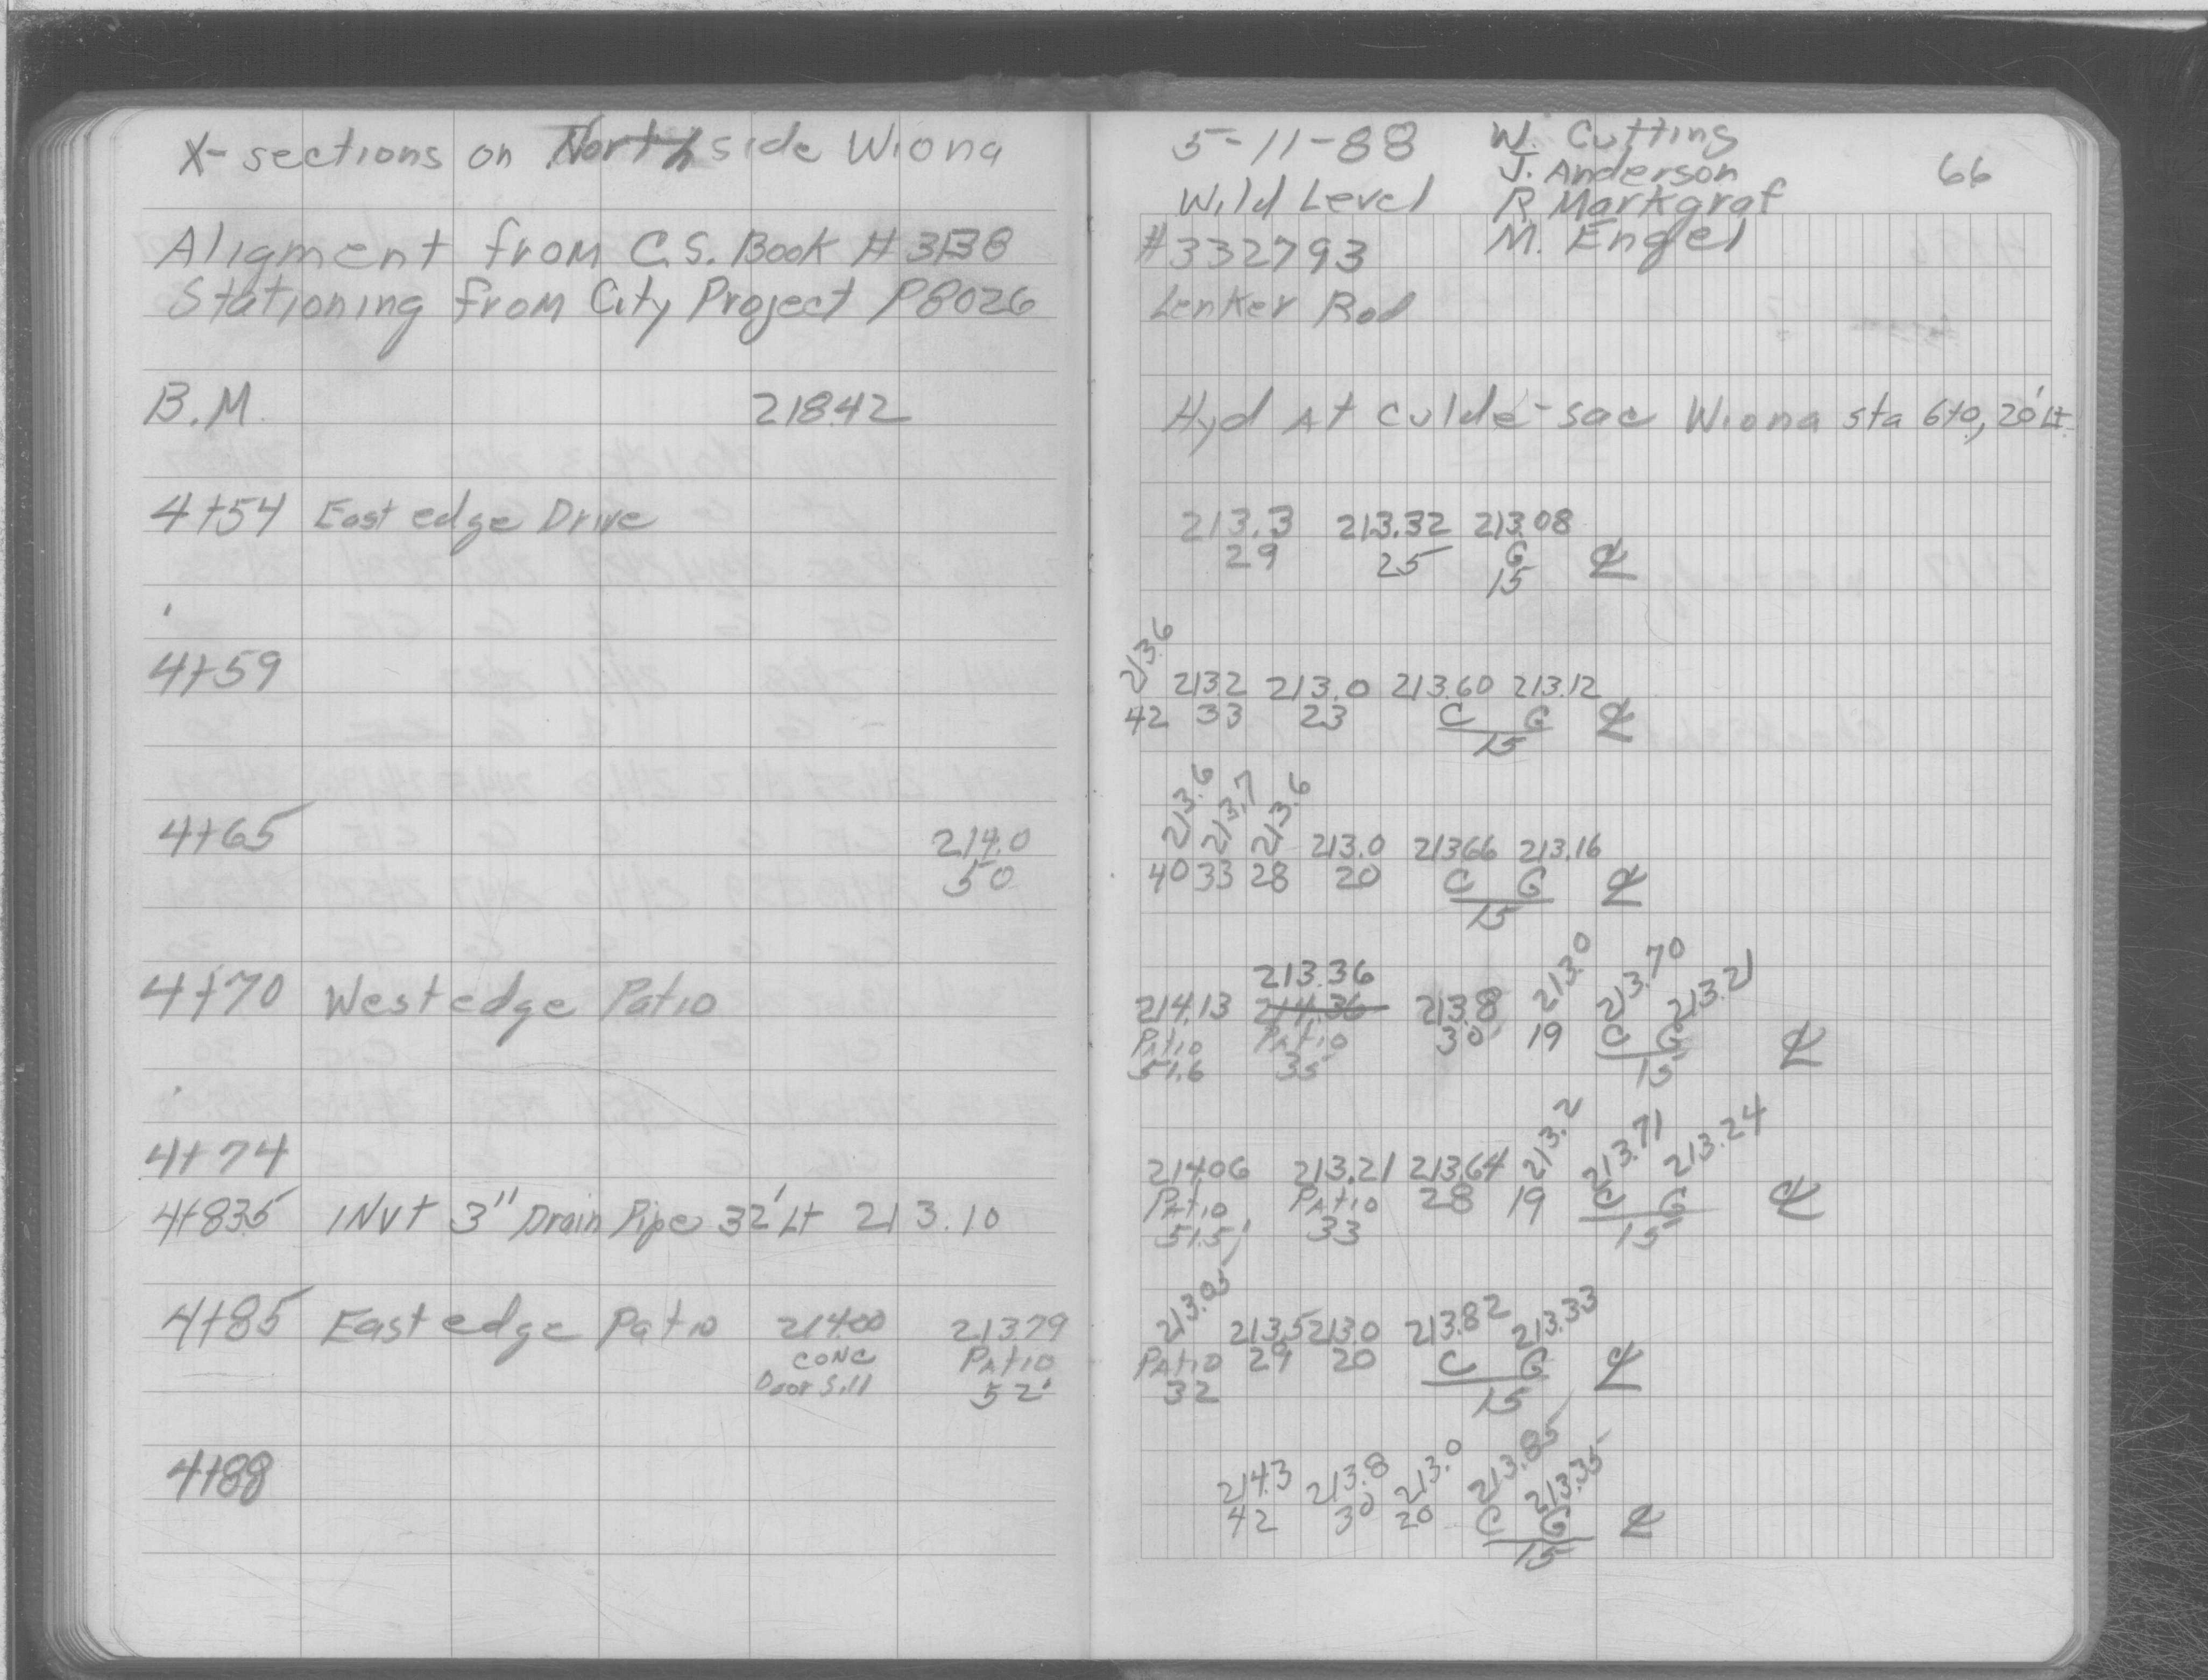 X-sections on North side Wiona
Aligment from C.S. Book #313B
Stationing from City Project P8026
B.M. 218.42
4+54 East edge Drive
4+59
4+65 214.0
50
4+70 West edge Patio
4+74
4+83.5 INVt 3" Drain Pipe 32' Lt 213.10
4+85 East edge Patio 214.00 213.79
CONC PAtio
Door Sill 52'
4+88
5-11-88 W. Cutting
J. Anderson 66
Wild Level R. Markgraf
#332793 M. Engel
Lenker Rod
Hyd At Culde-sac Wiona sta 6+0, 20' Lt.
213.3 213.32 213.08
29 25 G ℄
15
213.6 213.2 213.0 213.60 213.12
42 33 23 C G ℄
15
213.6 213.7 213.6 213.0 213.66 213.16
40 33 28 20 C G ℄
15
213.36
214.13 214.36 213.8 213.0 213.70 213.21
PAtio PAtio 30 19 C G ℄
51.6 35 15
214.06 213.21 213.64 213.2 213.71 213.24
PAtio PAtio 28 19 C G ℄
51.5' 33 15
213.05 213.5 213.0 213.82 213.33
PAtio 29 20 C G ℄
32 15
214.3 213.8 213.0 213.85 213.35
42 30 20 C G ℄
15